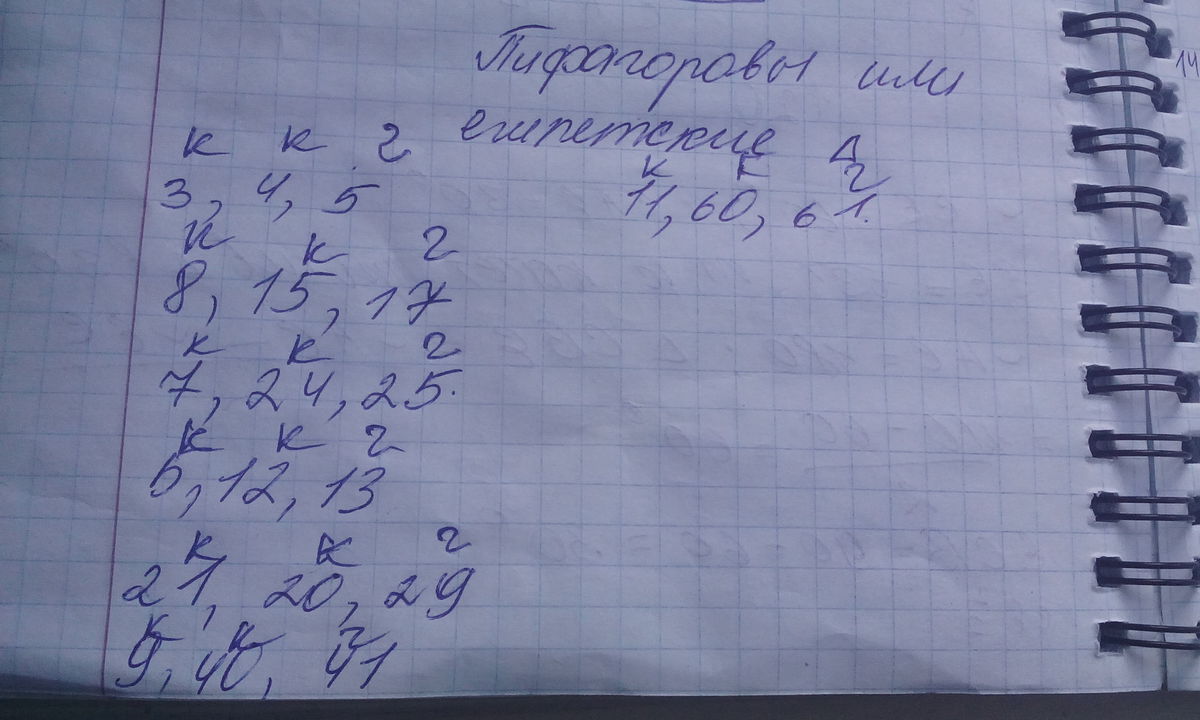 Пифагоровы или
египетские Δ
к к г
3, 4, 5
к к г
11, 60, 61.
к к г
8, 15, 17
к к г
7, 24, 25.
к к г
5, 12, 13
к к г
21, 20, 29
к к г
9, 40, 41
14